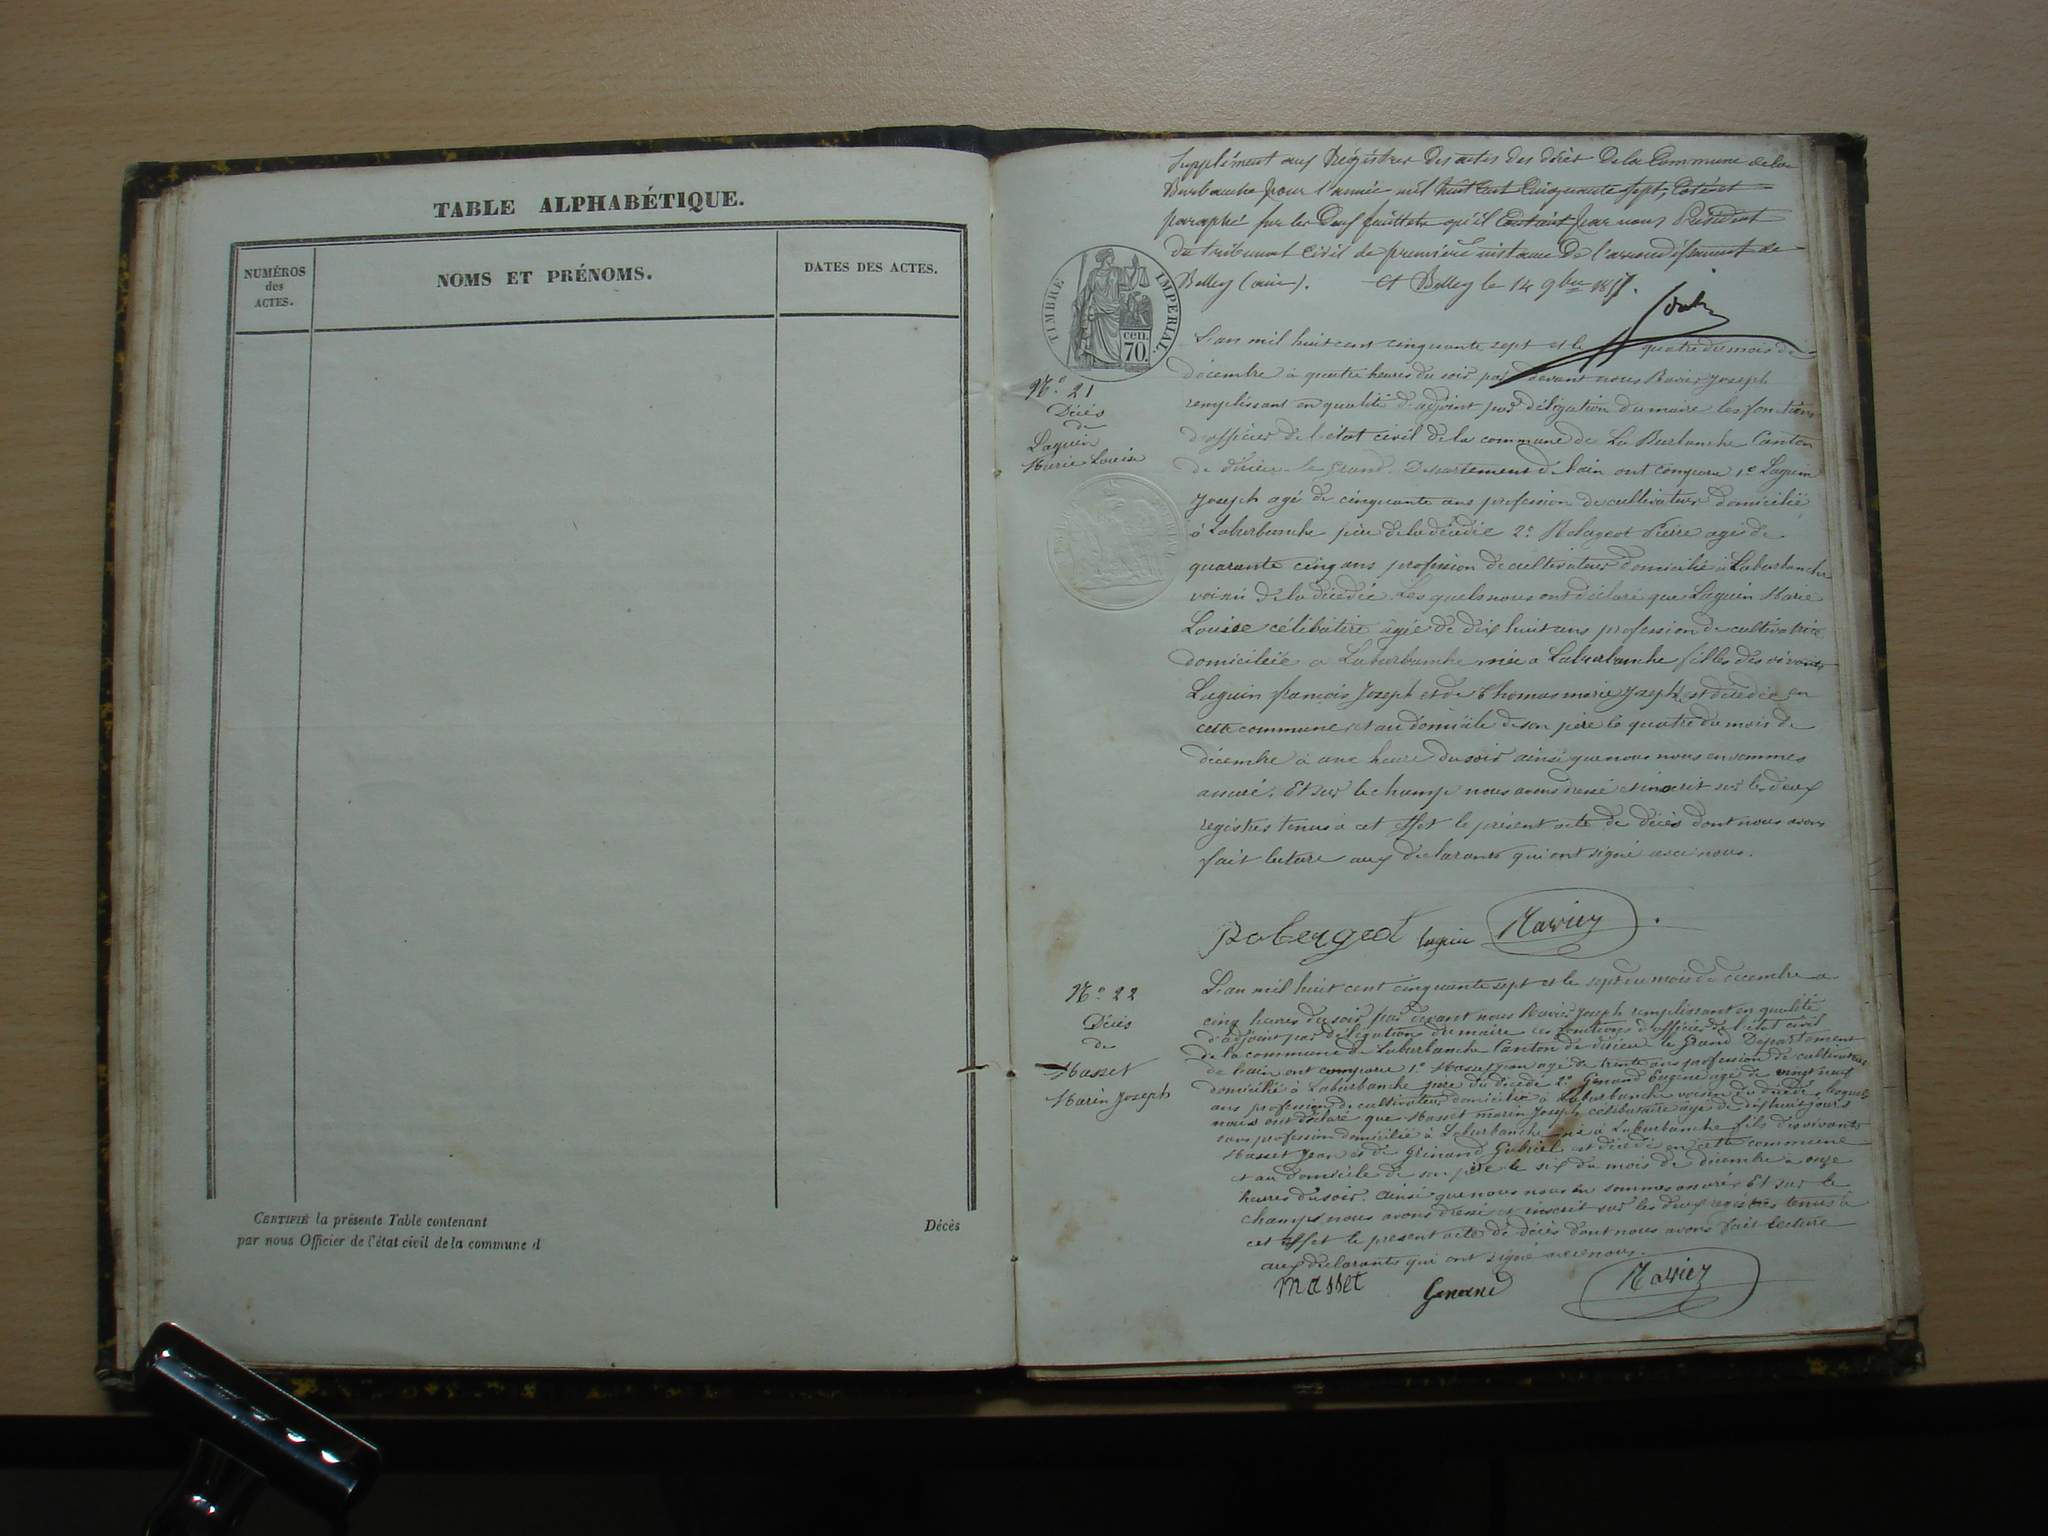 TABLE ALPHABÉTIQUE.
NUMÉROS
des
ACTES.
NOMS ET PRÉNOMS.
DATES DES ACTES.
CERTIFIÉ la présente Table contenant
Décès
par nous Officier de l'état civil de la commune d
Supplément aux Régistres des actes des décès de la Commune de la
Burbanche pour l'année mil huit cent cinquante sept, Coté et
paraphé sur les deux feuillets qu'il contient par nous Président
du tribunal civil de première instance de l'arrondissement de
Belley (ain). Belley le 14 9bre 1857.
TIMBRE IMPÉRIAL.
cen.
70.
L'an mil huit cent cinquante sept et le quatre du mois de
décembre à quatre heures du soir par devant nous Ravier Joseph
remplissant en qualité d'adjoint par déligation du maire les fonctions
d'officier de l'état civil de la commune de La Burbanche Canton
de Virieu-le-Grand Departement de l'ain ont comparu 1º Laguin
Joseph agé de cinquante ans profession de cultivateur domicilié
à Laburbanche père de la décédée 2º Pierre agé de
quarante cinq ans profession de cultivateur domicilié à Laburbanche
voisin de la décédée. Les quels nous ont déclaré que Laguin Marie
Louise célibatere agée de dix huit ans profession de cultivatrice
domiciliée a Laburbanche née a Laburbanche filles des vivants
Laguin françois Joseph et de Thomas marie Joseph est décédée en
cette commune et au domicile de son père le quatre du mois de
décembre à une heure du soir ainsi que nous nous en sommes
assuré. Et sur le champ nous avons dressé et inscrit sur les deux
registres tenus à cet effet le présent acte de décès dont nous avons
fait lecture aux déclarants qui ont signé avec nous.
Nº 21
Décès
de
Laguin
Marie Louise
laguin Ravier
Nº 22
Décès
de
Masset
Marin Joseph
L'an mil huit cent cinquante sept et le sept du mois de décembre a
cinq heures du soir par devant nous Ravier Joseph remplissant en qualité
d'adjoint par déligation du maire les fonctions d'officier de l'état civil
de la commune de Laburbanche Canton de Virieu le Grand Departement
de l'ain ont comparu 1º Masset jean agé de trente ans profession de cultivateur
domicilié à Laburbanche père du décédé 2º Genand Eugène agé de vingt neuf
ans profession de cultivateur domicilié à Laburbanche voisin du décédé, lesquels
nous ont déclaré que Masset marin Joseph célibataire agé de dix huit jours
sans profession domicilié à Laburbanche né à Laburbanche fils des vivants
Masset Jean et de est décédé en cette commune
et au domicile de son père le six du mois de décembre à onze
heures du soir. Ainsi que nous nous en sommes assuré. Et sur le
champs nous avons dressé et inscrit sur les deux registres tenus à
cet effet le present acte de décès dont nous avons fait lecture
aux déclarants qui ont signé avec nous.
masset Genand Ravier